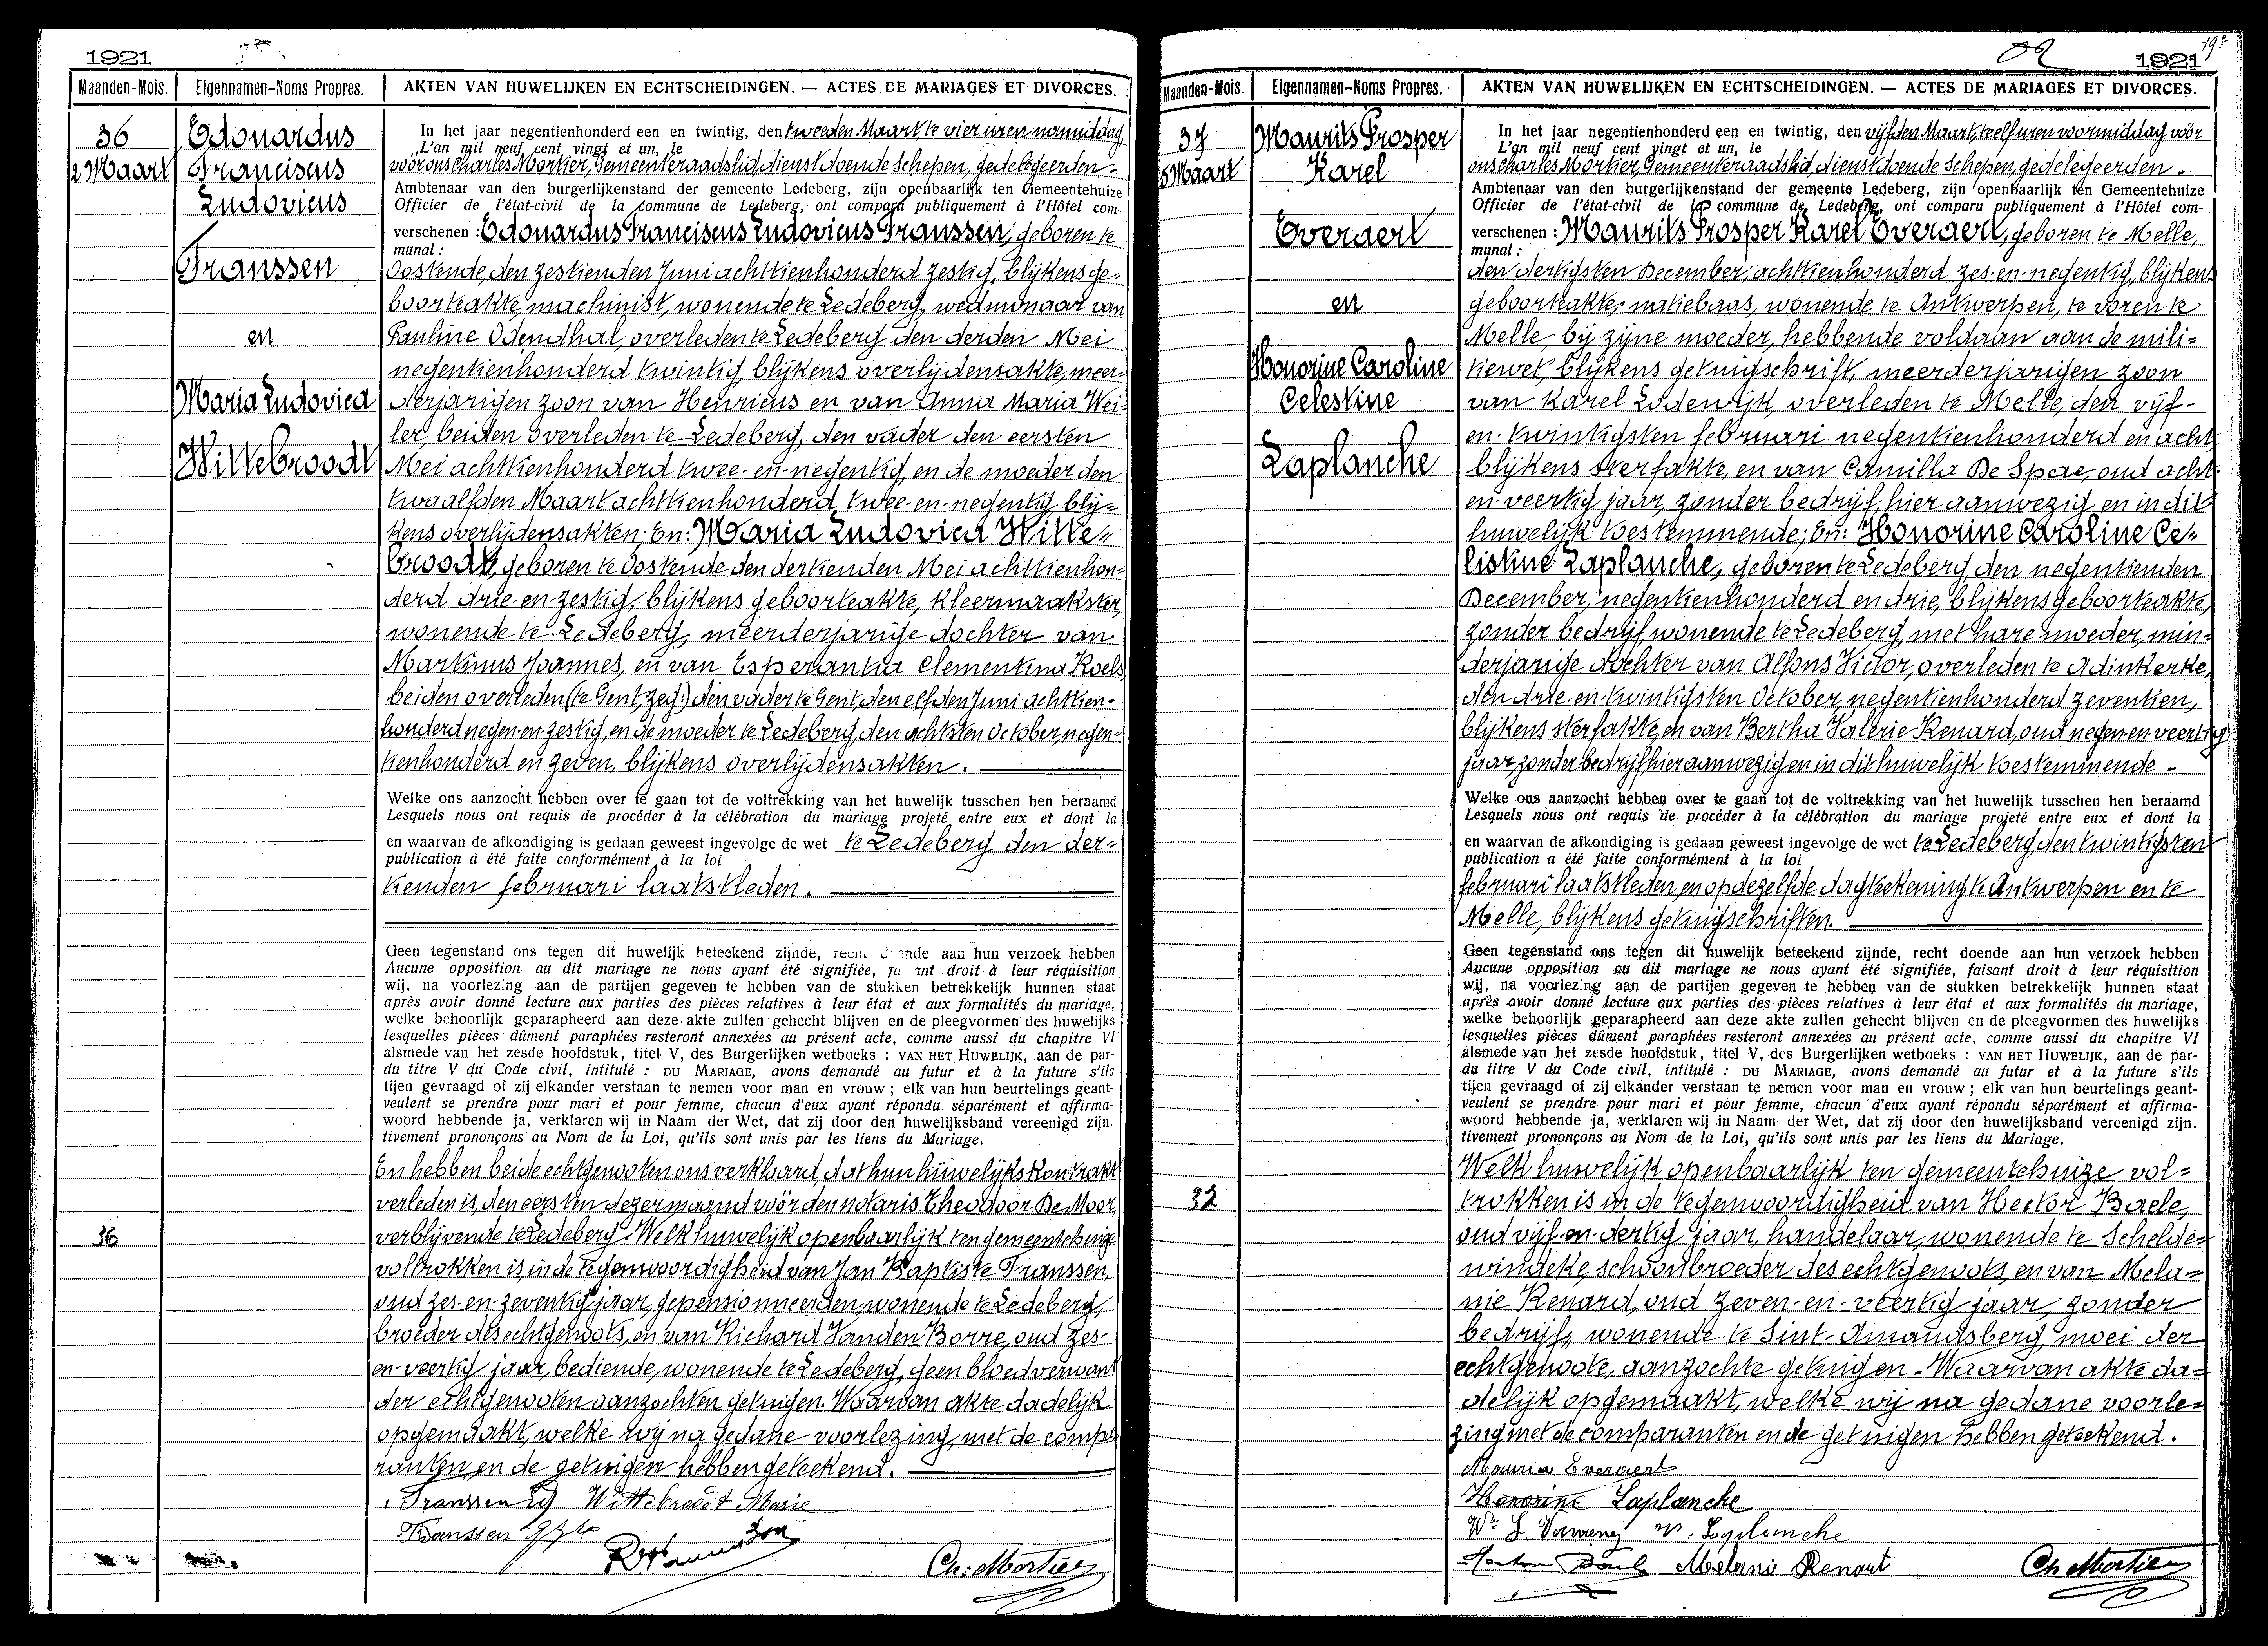 1921
Maanden-Mois. Eigennamen-Noms Propres. AKTEN VAN HUWELIJKEN EN ECHTSCHEIDINGEN. — ACTES DE MARIAGES ET DIVORCES.
36
2 Maart
Edouardus
Franciscus
Ludovicus
Franssen
en
Maria Ludovica
Wittebroodt
In het jaar negentienhonderd een en twintig, den tweeden Maart te vier uren namiddag,
L'an mil neuf cent vingt et un, le
voor ons Charles Mortier, Gemeenteraadslid, dienstdoende Schepen, gedelegeerden -
Ambtenaar van den burgerlijkenstand der gemeente Ledeberg, zijn openbaarlijk ten Gemeentehuize
Officier de l'état-civil de la commune de Ledeberg, ont comparu publiquement à l'Hôtel com-
verschenen : Edouardus Franciscus Ludovicus Franssen, geboren te
munal :
Oostende, den zestienden Juni achttienhonderd zestig, blijkens ge-
boorteakte, machinist, wonende te Ledeberg, weduwnaar van
Pauline Odendhal, overleden te Ledeberg den derden Mei
negentienhonderd twintig, blijkens overlijdensakte, meer-
derjarigen zoon van Henricus en van Anna Maria Wei-
ler, beiden overleden te Ledeberg, den vader den eersten
Mei achttienhonderd twee-en-negentig, en de moeder den
twaalfden Maart achttienhonderd, twee-en-negentig, blij-
kens overlijdensakten; En: Maria Ludovica Witte-
broodt, geboren te Oostende den dertienden Mei achttienhon-
derd drie-en-zestig, blijkens geboorteakte, kleermaakster,
wonende te Ledeberg, meerderjarige dochter van
Martinus Joannes, en van Esperantia Clementina Roels
beiden overleden (te Gent, zegt) den vader te Gent, den elfden Juni achttien-
honderd negen-en-zestig, en de moeder te Ledeberg, den achtsten October, negen-
tienhonderd en zeven, blijkens overlijdensakten.
Welke ons aanzocht hebben over te gaan tot de voltrekking van het huwelijk tusschen hen beraamd
Lesquels nous ont requis de procéder à la célébration du mariage projeté entre eux et dont la
en waarvan de afkondiging is gedaan geweest ingevolge de wet te Ledeberg den der-
publication a été faite conformément à la loi
tienden februari laatstleden.
Geen tegenstand ons tegen dit huwelijk beteekend zijnde, recht doende aan hun verzoek hebben
Aucune opposition au dit mariage ne nous ayant été signifiée, faisant droit à leur réquisition
wij, na voorlezing aan de partijen gegeven te hebben van de stukken betrekkelijk hunnen staat
après avoir donné lecture aux parties des pièces relatives à leur état et aux formalités du mariage,
welke behoorlijk geparapheerd aan deze akte zullen gehecht blijven en de pleegvormen des huwelijks
lesquelles pièces dûment paraphées resteront annexées au présent acte, comme aussi du chapitre VI
alsmede van het zesde hoofdstuk, titel V, des Burgerlijken wetboeks : VAN HET HUWELIJK, aan de par-
du titre V du Code civil, intitulé : DU MARIAGE, avons demandé au futur et à la future s'ils
tijen gevraagd of zij elkander verstaan te nemen voor man en vrouw ; elk van hun beurtelings geant-
veulent se prendre pour mari et pour femme, chacun d'eux ayant répondu séparément et affirma-
woord hebbende ja, verklaren wij in Naam der Wet, dat zij door den huwelijksband vereenigd zijn.
tivement prononçons au Nom de la Loi, qu'ils sont unis par les liens du Mariage.
En hebben beide echtgenooten ons verklaard, dat hun huwelijkskontrakt
verleden is, den eersten dezer maand vóór den notaris Theodoor De Moor,
verblijvende te Ledeberg. Welk huwelijk openbaarlijk ten gemeentehuize
36
voltrokken is, in de tegenwoordigheid van Jan Baptiste Franssen,
oud zes-en-zeventig jaar, gepensionneerden, wonende te Ledeberg,
broeder des echtgenoots, en van Richard Vanden Borre, oud zes-
en-veertig jaar, bediende, wonende te Ledeberg, geen bloedverwant
der echtgenooten aanzochten getuigen. Waarvan akte dadelijk
opgemaakt, welke wij na gedane voorlezing, met de compa-
ranten en de getuigen hebben geteekend.
Franssen Ed Wittebroodt Marie
Franssen
Ch. Mortier
19e
1921
Maanden-Mois. Eigennamen-Noms Propres. AKTEN VAN HUWELIJKEN EN ECHTSCHEIDINGEN. — ACTES DE MARIAGES ET DIVORCES.
37
5 Maart
Maurits Prosper
Karel
Everaert
en
Honorine Caroline
Celestine
Laplanche
In het jaar negentienhonderd een en twintig, den vijfden Maart te elf uren voormiddag vóór
L'an mil neuf cent vingt et un, le
ons Charles Mortier, Gemeenteraadslid, dienstdoende Schepen, gedelegeerden -
Ambtenaar van den burgerlijkenstand der gemeente Ledeberg, zijn openbaarlijk ten Gemeentehuize
Officier de l'état-civil de la commune de Ledeberg, ont comparu publiquement à l'Hôtel com-
verschenen : Maurits Prosper Karel Everaert, geboren te Melle,
munal :
den dertigsten December, achttienhonderd zes-en-negentig, blijkens
geboorteakte, natiebaas, wonende te Antwerpen, te voren te
Melle, bij zijne moeder, hebbende voldaan aan de mili-
tiewet, blijkens getuigschrift, meerderjarigen zoon
van Karel Lodewijk, overleden te Melle, den vijf-
en-twintigsten februari negentienhonderd en acht
blijkens sterfakte, en van Camilla De Spae, oud acht-
en-veertig jaar, zonder bedrijf, hier aanwezig en in dit
huwelijk toestemmende; En: Honorine Caroline Ce-
listine Laplanche, geboren te Ledeberg, den negentienden
December, negentienhonderd en drie, blijkens geboorteakte,
zonder bedrijf wonende te Ledeberg, met hare moeder, min-
derjarige dochter van Alfons Victor, overleden te Adinkerke,
den drie-en-twintigsten October, negentienhonderd zeventien,
blijkens sterfakte, en van Bertha Valerie Renard, oud negen-en-veertig
jaar, zonder bedrijf hier aanwezig en in dit huwelijk toestemmende -
Welke ons aanzocht hebben over te gaan tot de voltrekking van het huwelijk tusschen hen beraamd
Lesquels nous ont requis de procéder à la célébration du mariage projeté entre eux et dont la
en waarvan de afkondiging is gedaan geweest ingevolge de wet te Ledeberg, den twintigsten
publication a été faite conformément à la loi
februari laatstleden, en op dezelfde dagteekening te Antwerpen en te
Melle, blijkens getuigschriften.
Geen tegenstand ons tegen dit huwelijk beteekend zijnde, recht doende aan hun verzoek hebben
Aucune opposition au dit mariage ne nous ayant été signifiée, faisant droit à leur réquisition
wij, na voorlezing aan de partijen gegeven te hebben van de stukken betrekkelijk hunnen staat
après avoir donné lecture aux parties des pièces relatives à leur état et aux formalités du mariage,
welke behoorlijk geparapheerd aan deze akte zullen gehecht blijven en de pleegvormen des huwelijks
lesquelles pièces dûment paraphées resteront annexées au présent acte, comme aussi du chapitre VI
alsmede van het zesde hoofdstuk, titel V, des Burgerlijken wetboeks : VAN HET HUWELIJK, aan de par-
du titre V du Code civil, intitulé : DU MARIAGE, avons demandé au futur et à la future s'ils
tijen gevraagd of zij elkander verstaan te nemen voor man en vrouw ; elk van hun beurtelings geant-
veulent se prendre pour mari et pour femme, chacun d'eux ayant répondu séparément et affirma-
woord hebbende ja, verklaren wij in Naam der Wet, dat zij door den huwelijksband vereenigd zijn.
tivement prononçons au Nom de la Loi, qu'ils sont unis par les liens du Mariage.
Welk huwelijk openbaarlijk ten gemeentehuize vol-
trokken is in de tegenwoordigheid van Hector Baele,
oud vijf-en-dertig jaar, handelaar, wonende te Schelde-
windeke, schoonbroeder des echtgenoots, en van Mela-
nie Renard, oud zeven-en-veertig jaar, zonder
bedrijf, wonende te Sint-Amandsberg, moei der
echtgenoote, aanzochte getuigen. Waarvan akte da-
delijk opgemaakt, welke wij na gedane voorle-
zing met de comparanten en de getuigen hebben geteekend.
Everaert
Honorine Laplanche
Laplanche
Ch Mortier